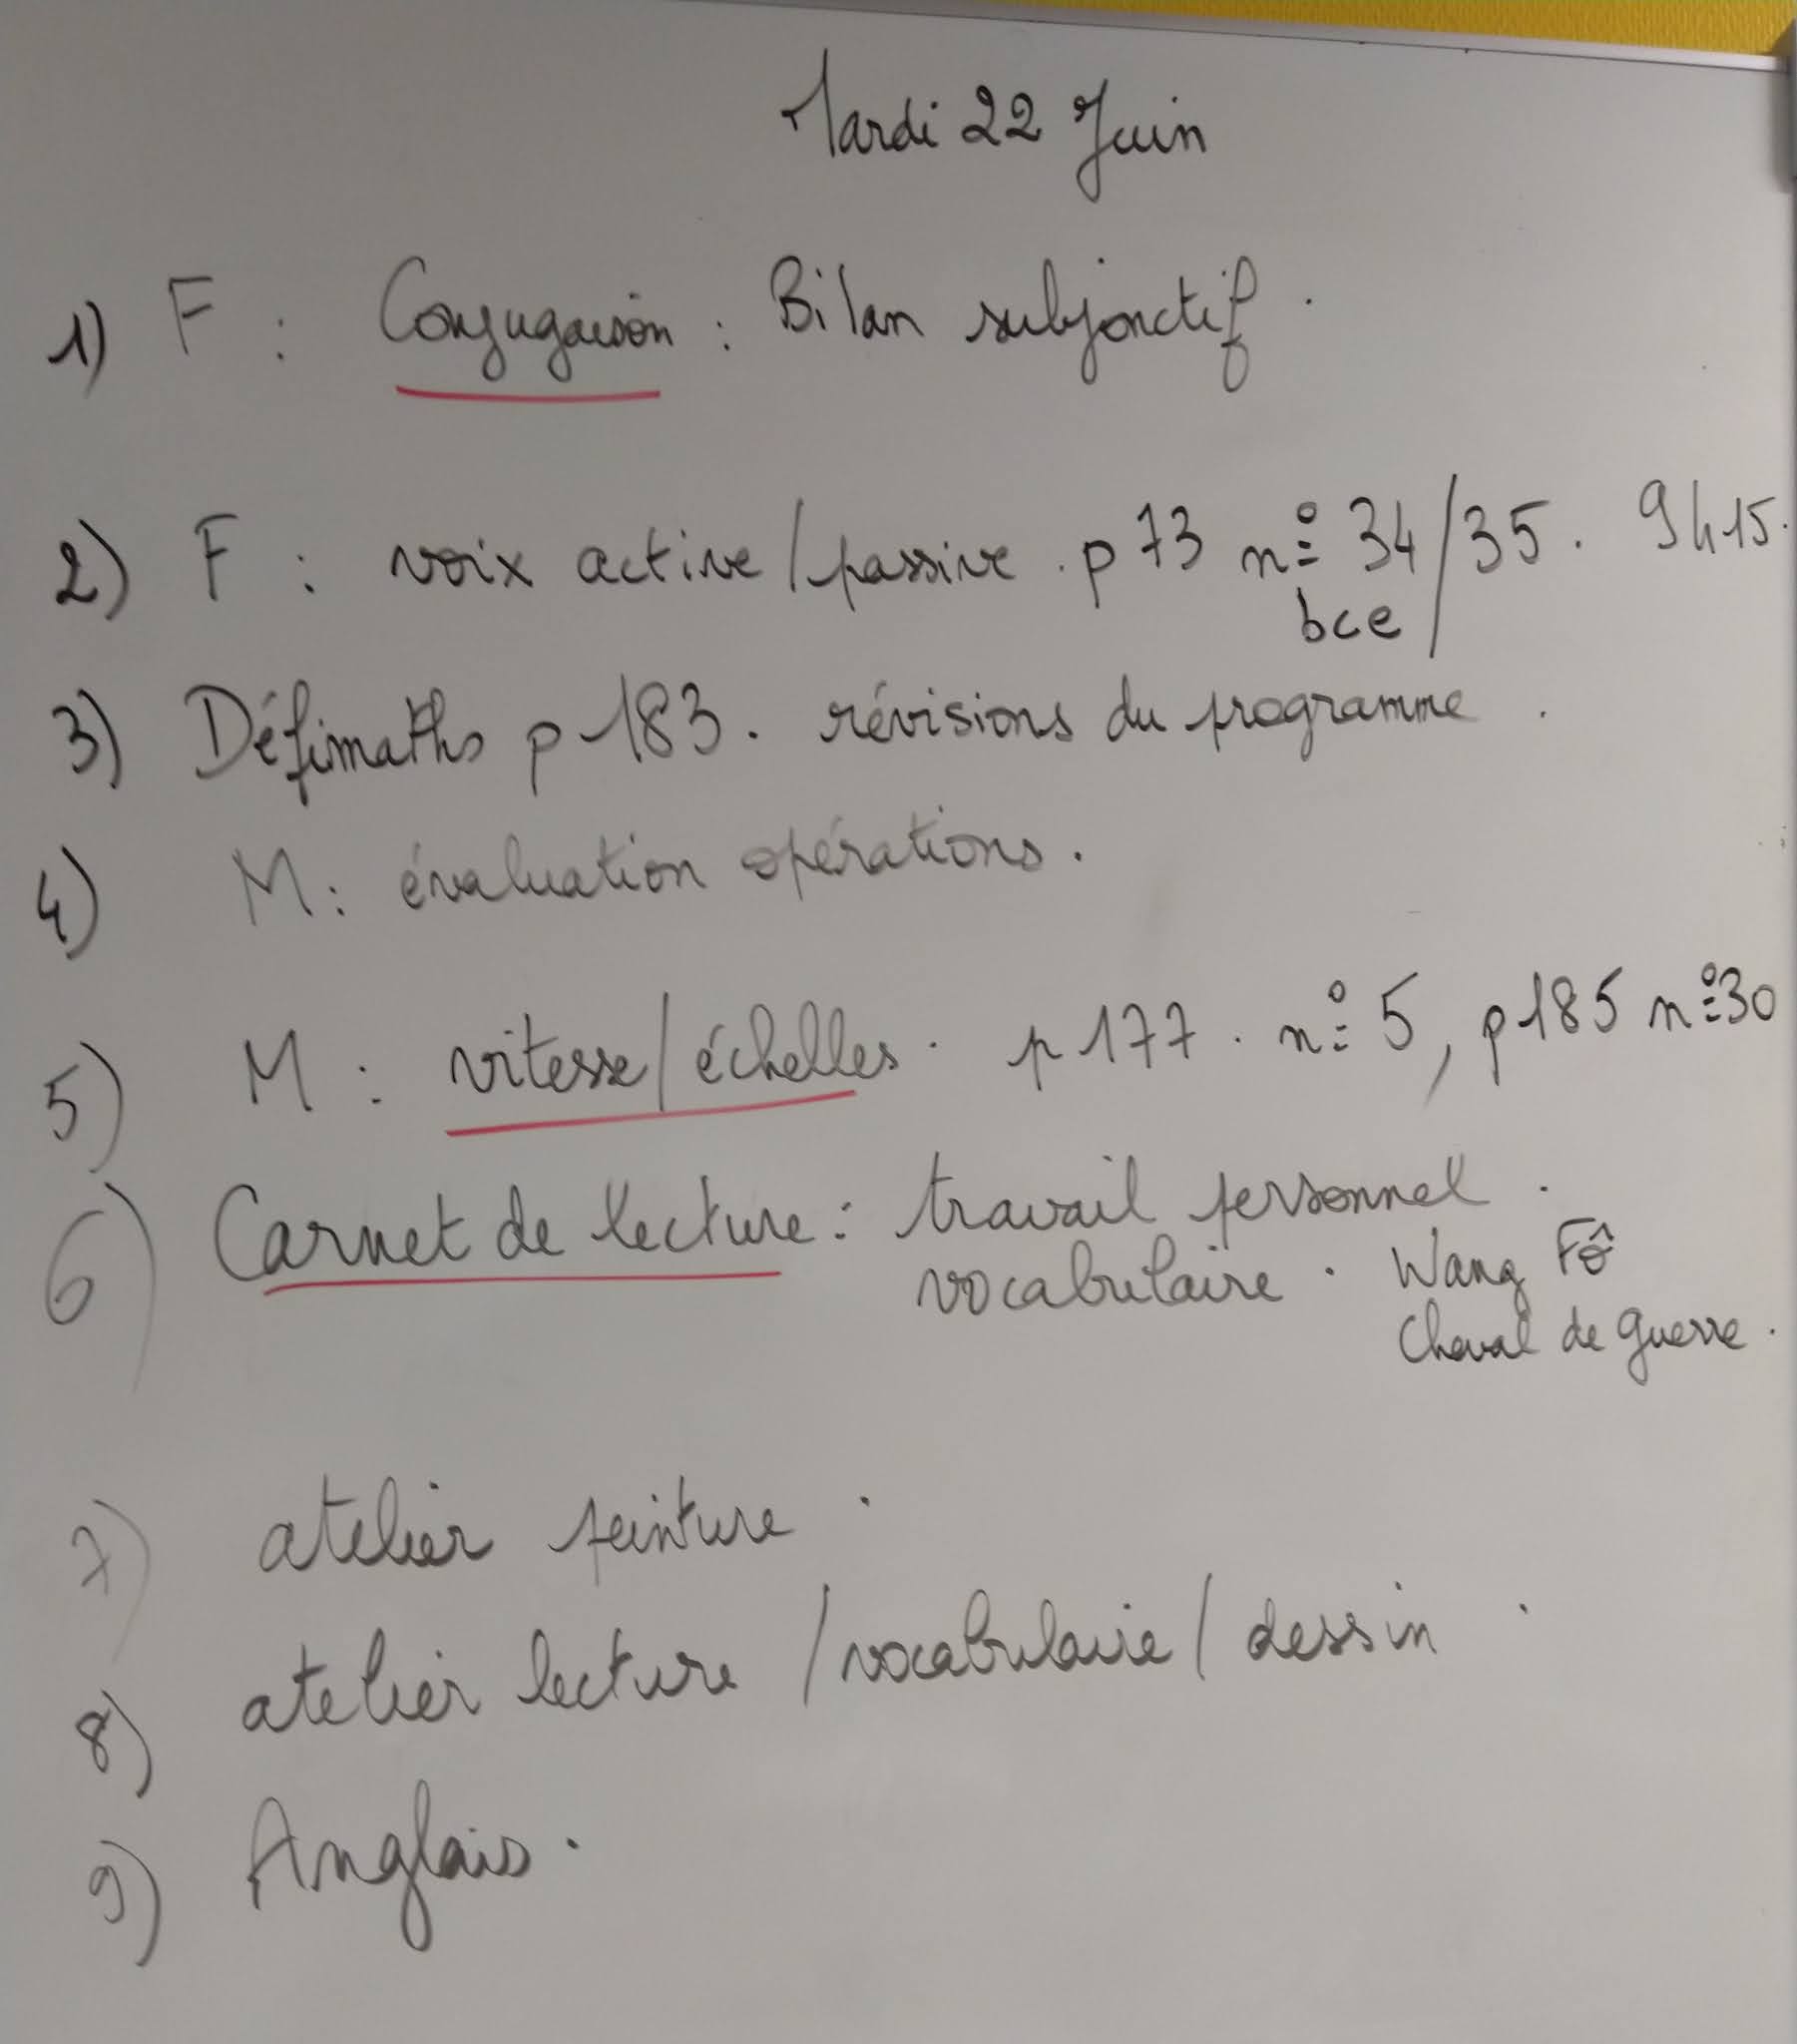 Mardi 22 Juin
1) F : Conjugaison : Bilan subjonctif.
2) F : voix active / passive . p 73 n° 34 / 35. 9h15.
bce
3) Défimaths p 183. révisions du programme.
4) M : évaluation opérations.
5) M : vitesse / échelles. p 177. n° 5, p 185 n° 30
6) Carnet de lecture : travail personnel.
vocabulaire. Wang Fô
Cheval de guerre.
7) atelier peinture.
8) atelier lecture / vocabulaire / dessin.
9) Anglais.